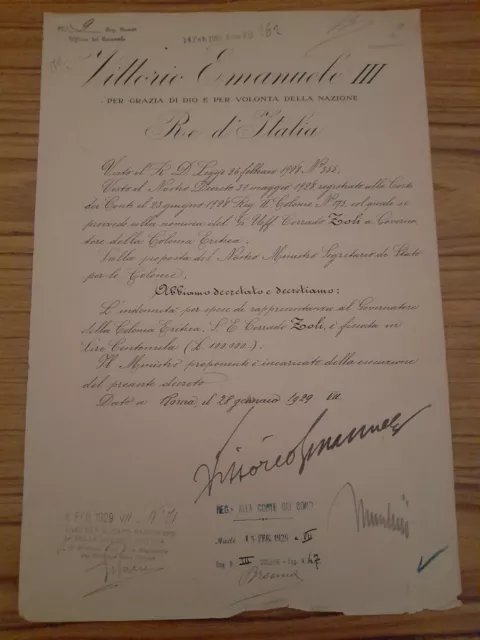 9 Reg. Decreti
Vittorio Emanuele III
PER GRAZIA DI DIO E PER VOLONTÀ DELLA NAZIONE
Re d'Italia
Visto il R. D. Legge 26 febbraio 1928 N° 355;
Visto il Nostro Decreto 31 maggio 1928, registrato alla Corte
dei Conti il 23 giugno 1928 Reg. N° Colonie N° 193, col quale si
provvede alla nomina del Gr. Uff. Corrado Zoli a Governa-
tore della Colonia Eritrea.
Sulla proposta del Nostro Ministro Segretario di Stato
per le Colonie;
Abbiamo decretato e decretiamo:
L'indennità per spese di rappresentanza al Governatore
della Colonia Eritrea, S. E. Corrado Zoli, è fissata in
Lire Centomila (£ 100.000.)
Il Ministro proponente è incaricato della esecuzione
del presente decreto
Dato a Roma il 28 gennaio 1929 VII.
Vittorio Emanuele
FEB. 1929
REG. ALLA CORTE DEI CONTI
Addì 15 FEB. 1929 a VII
Mussolini